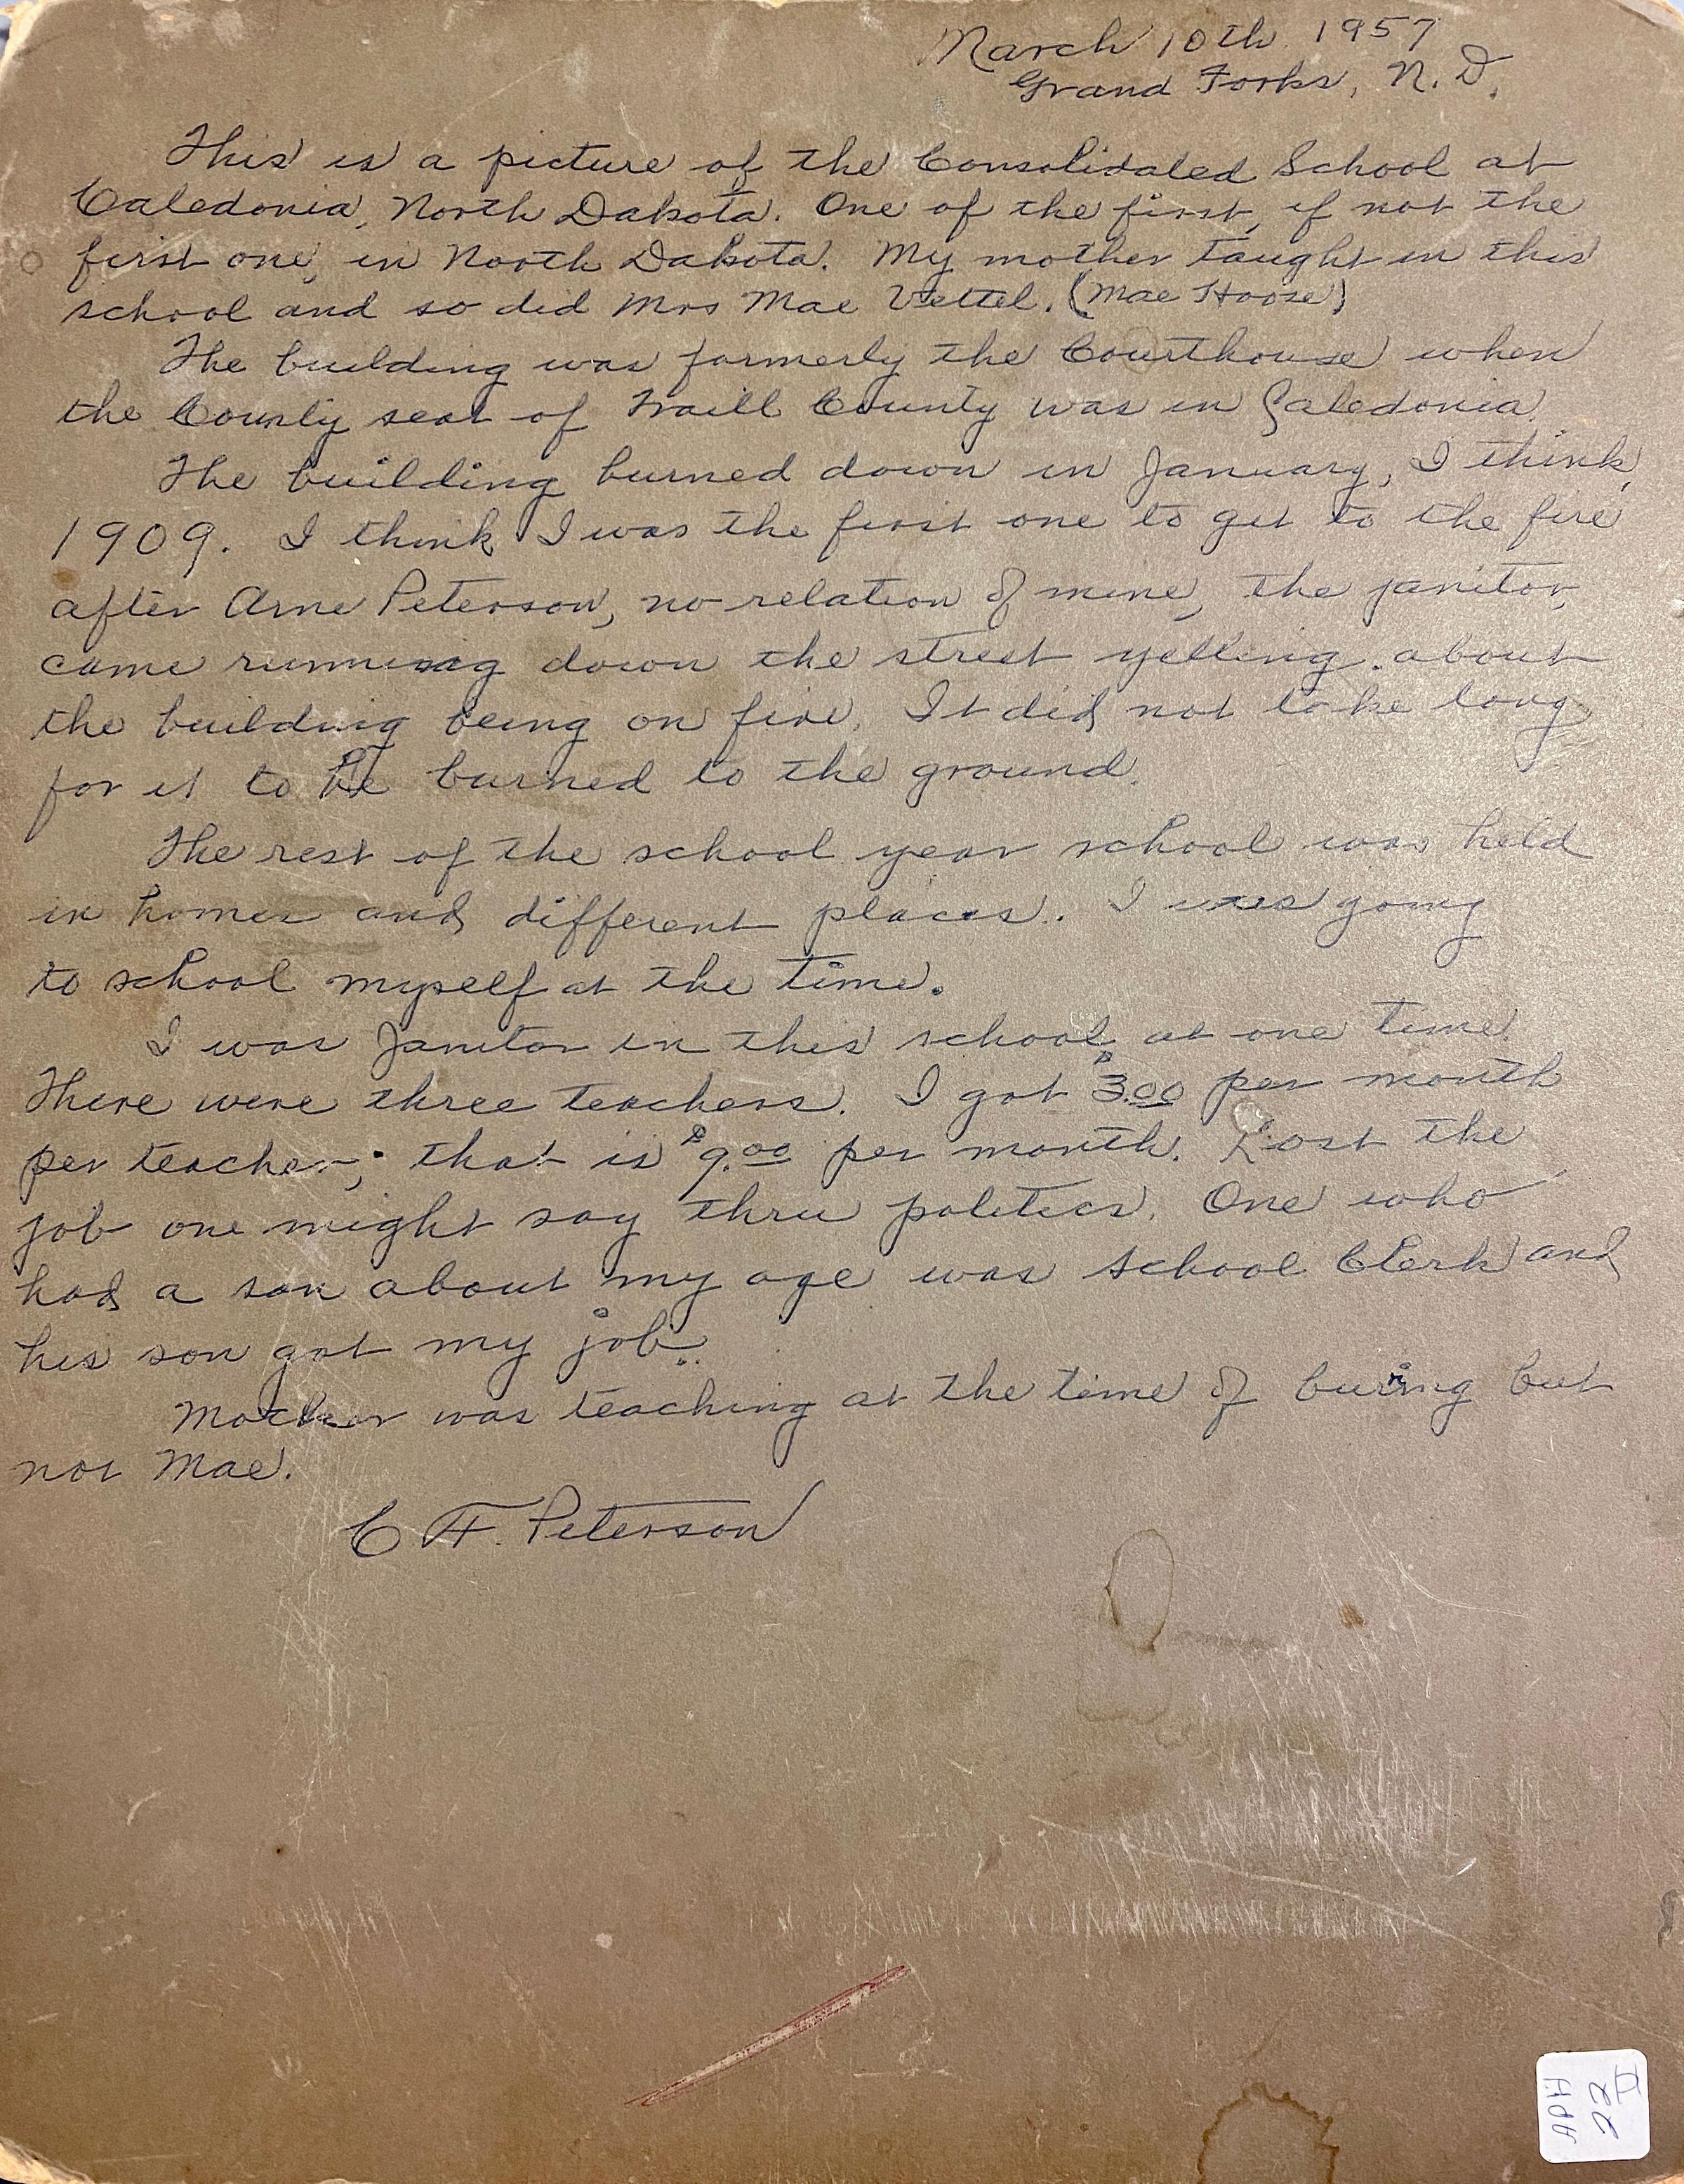 March 10th 1957
Grand Forks, N. D.
This is a picture of the Consolidated School at
Caledonia, North Dakota. One of the first, if not the
first one, in North Dakota. My mother taught in this
school and so did Mrs Mae Vettel. (Mae Hoose)
The building was formerly the Courthouse when
the County seat of Traill County was in Caledonia.
The building burned down in January, I think,
1909. I think I was the first one to get to the fire
after Arne Peterson, no relation of mine, the janitor,
came running down the street yelling about
the building being on fire. It did not take long
for it to be burned to the ground.
The rest of the school year school was held
in homes and different places. I was going
to school myself at the time.
I was Janitor in this school at one time.
There were three teachers. I got $3.00 per month
per teacher; that is $9.00 per month. Lost the
job one might say thru politics. One who
had a son about my age was school Clerk and
his son got my job.
Mother was teaching at the time of buring but
not Mae.
C F. Peterson
APH
22
II